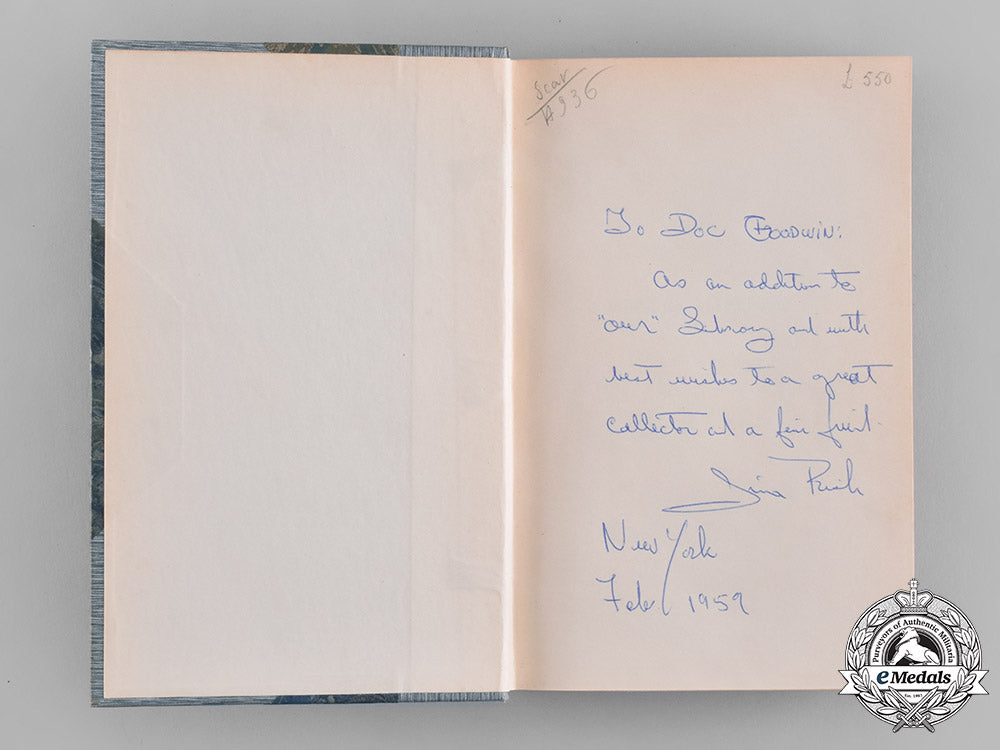 Scar
A936
£ 550
To Doc Goodwin:
As an addition to
"our" Library and with
best wishes to a great
collector and a fine friend.
New York
Feb 1959
Purveyors of Authentic Militaria
eMedals